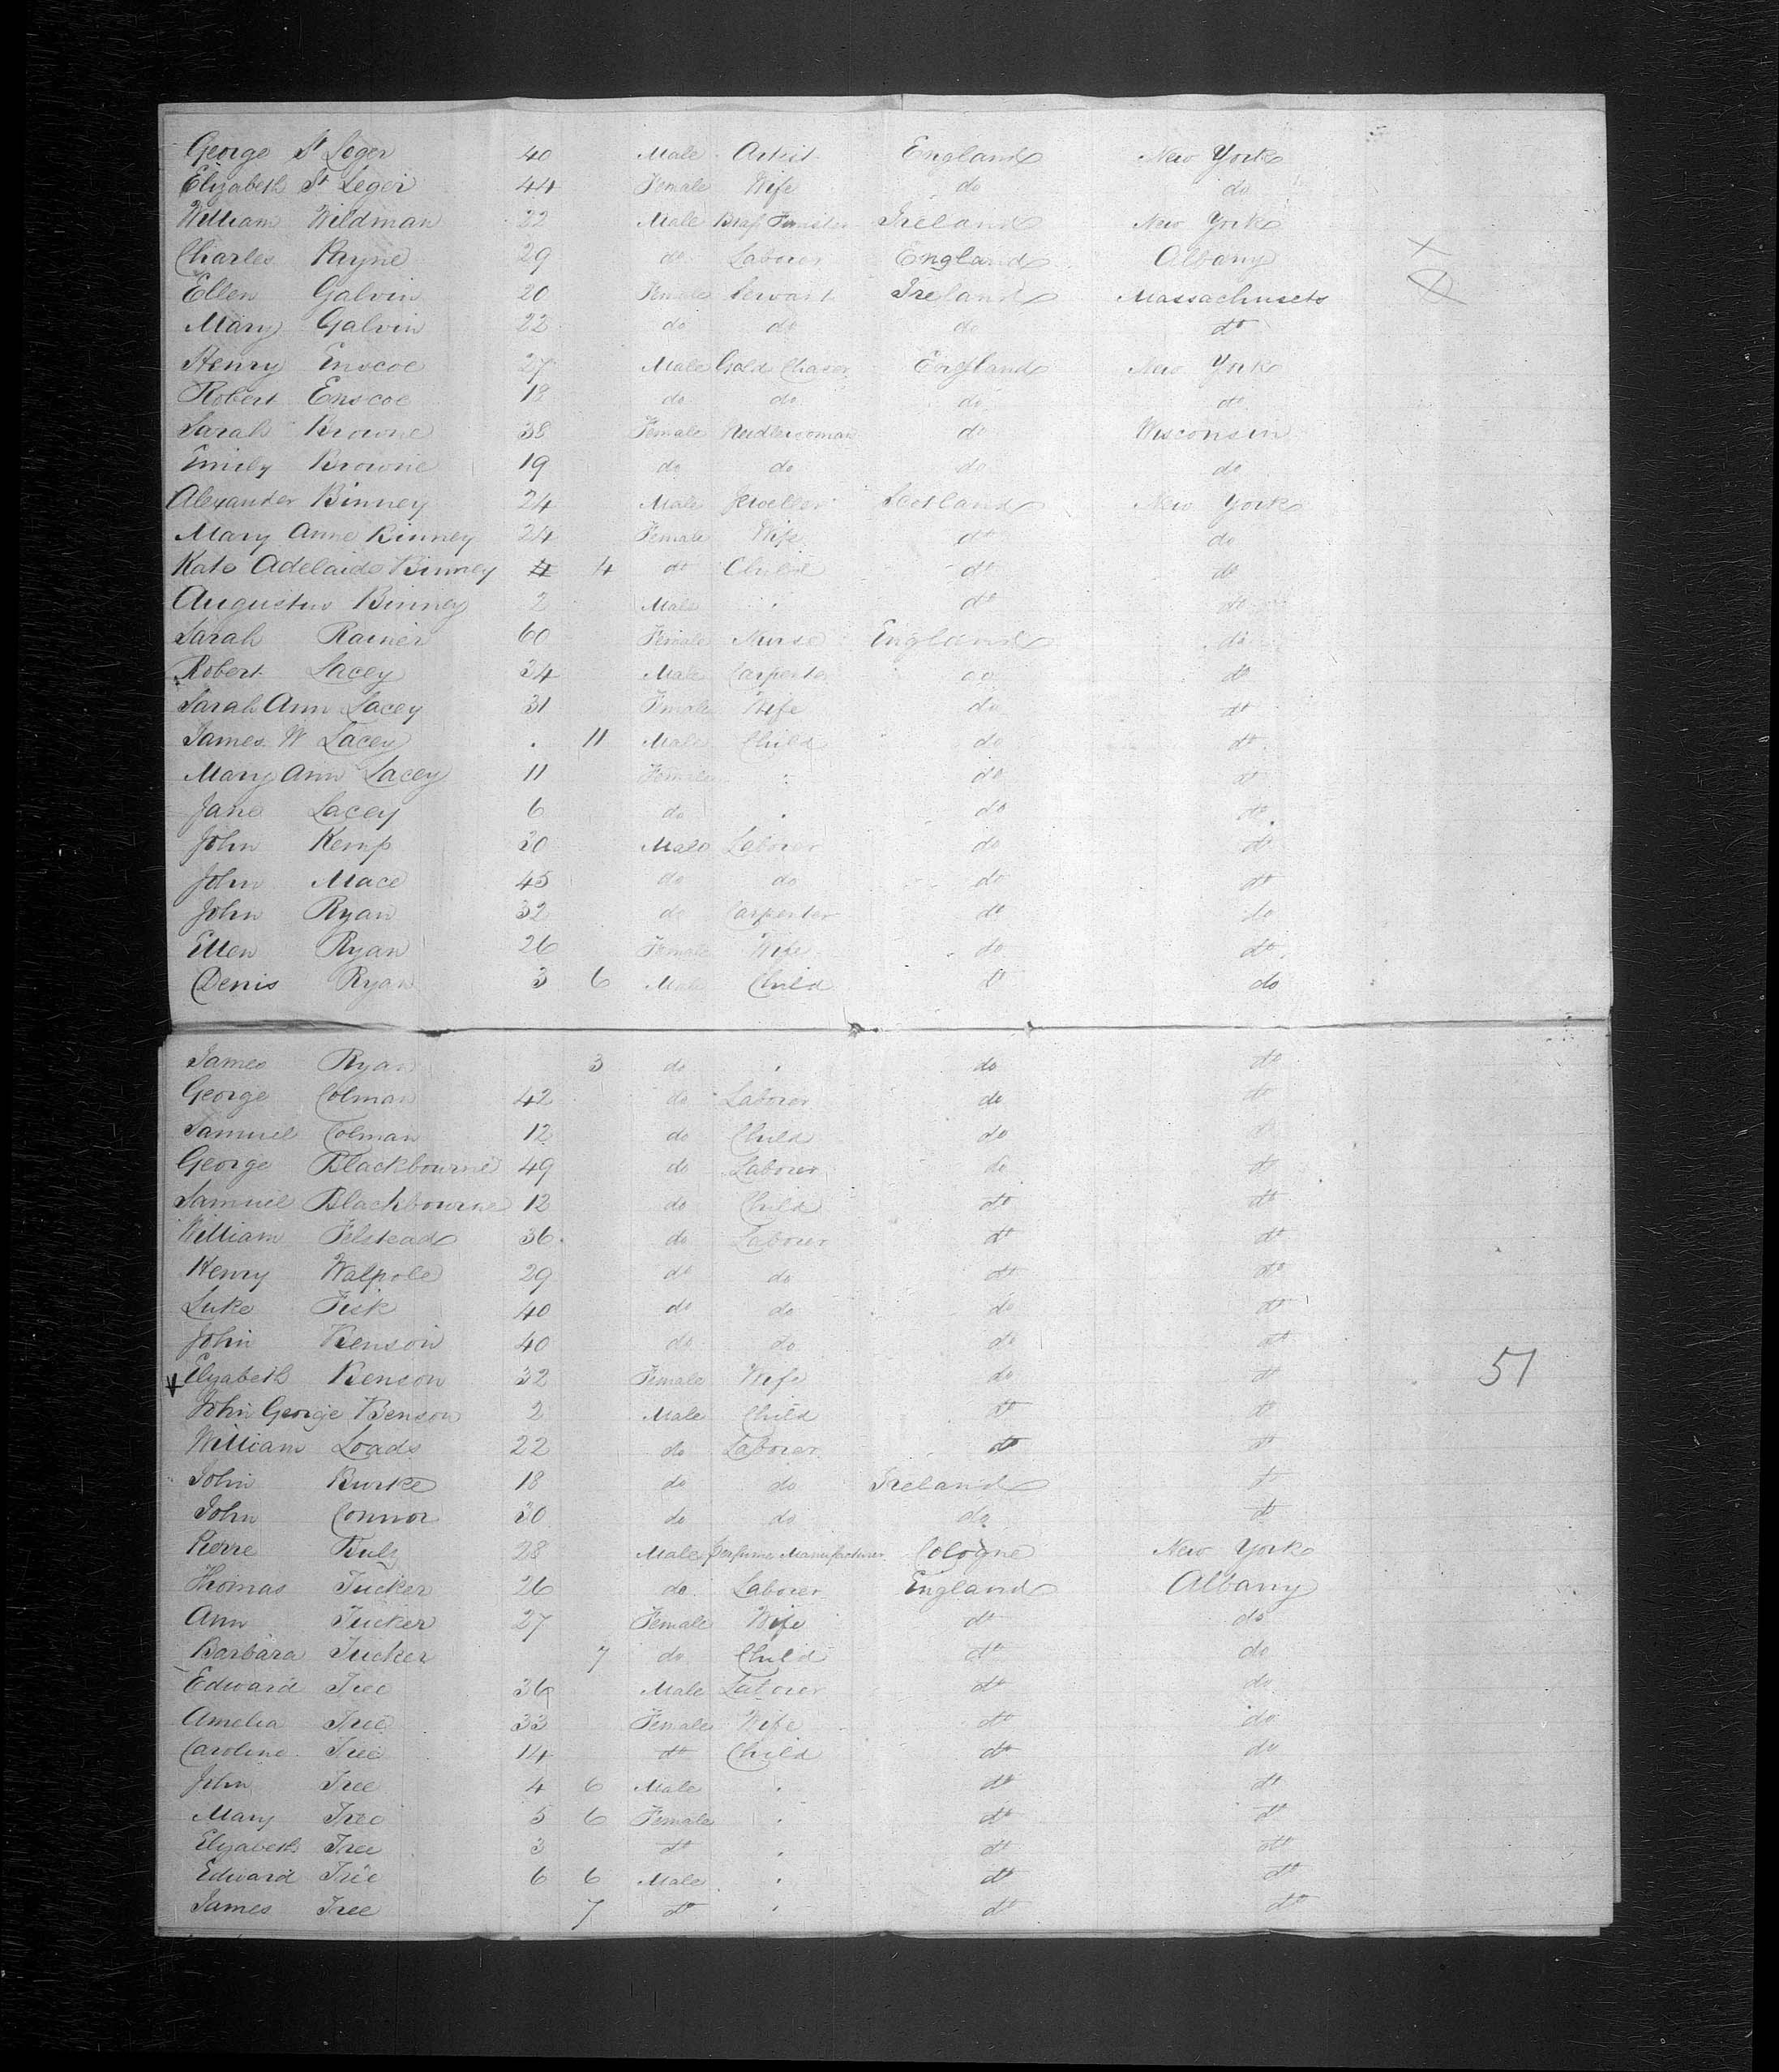 George St Leger 40 Male Artist England New York
Elizabeth St Leger 44 Female Wife do do
William Wildman 22 Male Brass Ireland New York
Charles Payne 29 do Laborer England Albany ×
Ellen Galvin 20 Female Servant Ireland Massachusets
Mary Galvin 22 do do do do
Henry Enscoe 27 Male Gold Chaser England New York
Robert Enscoe 18 do do do do
Sarah Browne 38 Female Needlewoman do Wisconsin
Emily Browne 19 do do do do
Alexander Binney 24 Male Jeweller Scotland New York
Mary Anne Binney 24 Female Wife do do
Kate Adelaide Binney 4 do Child do do
Augustus Binney 2 Male do do
Sarah Rainer 60 Female Nurse England do
Robert Lacey 34 Male Carpenter do do
Sarah Ann Lacey 31 Female Wife do do
James W Lacey 11 Male Child do do
Mary Ann Lacey 11 Female do do
Jane Lacey 6 do do do
John Kemp 30 Male Laborer do do
John Mace 45 do do do do
John Ryan 32 do Carpenter do do
Ellen Ryan 26 Female Wife do do
Denis Ryan 3 6 Male Child do do
James Ryan 3 do do do
George Colman 42 do Laborer do do
Samuel Colman 12 do Child do do
George Blackbourne 49 do Laborer do do
Samuel Blackbourne 12 do Child do do
William Felstead 36 do Laborer do do
Henry Walpole 29 do do do do
Luke Fisk 40 do do do do
John Benson 40 do do do do
Elizabeth Benson 32 Female Wife do do 51
John George Benson 2 Male Child do do
William Loads 22 do Laborer do do
John Burke 18 do do Ireland do
John Connor 30 do do do do
Pierre 28 Male Perfume Manufacturer Cologne New York
Thomas Tucker 26 do Laborer England Albany
Ann Tucker 27 Female Wife do do
Barbara Tucker 7 do Child do do
Edward Tree 36 Male Laborer do do
Amelia Tree 33 Female Wife do do
Caroline Tree 14 do Child do do
John Tree 4 6 Male do do
Mary Tree 5 6 Female do do
Elizabeth Tree 3 do do do
Edward Tree 6 6 Male do do
James Tree 7 do do do